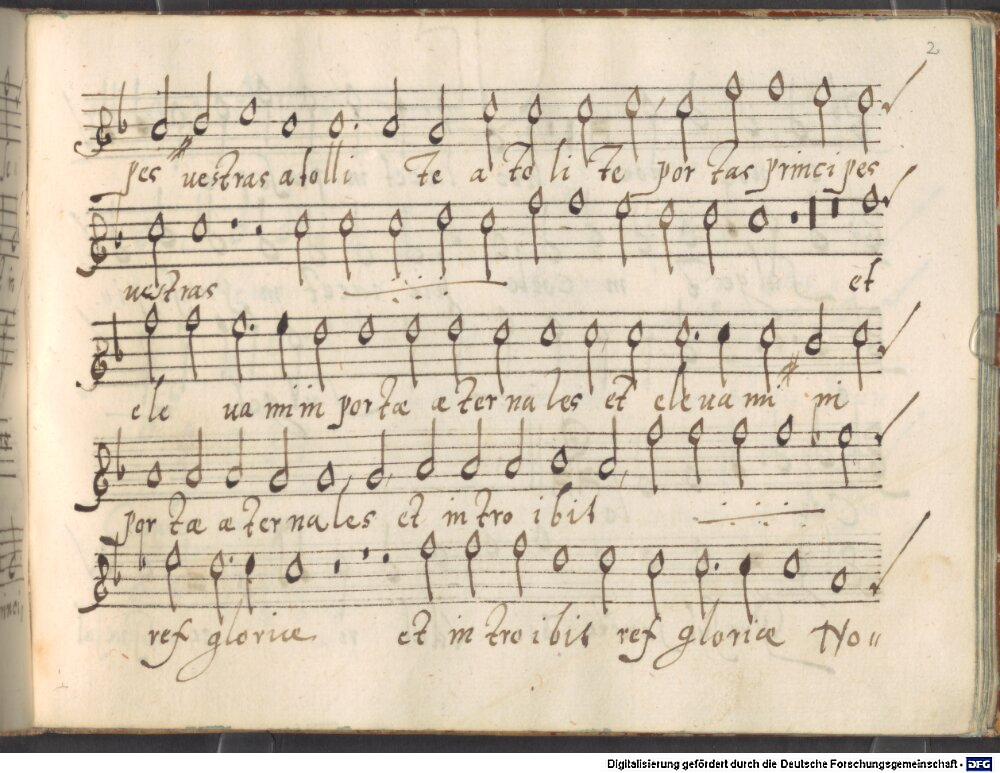 2
pes vestras atolli te a to li te por tas princi pes
vestras et
ele va mini portæ æ ter na les et eleva mi ni
por tæ æ ter na les et intro ibit
ref gloriæ et intro ibit ref gloriæ No=
Digitalisierung gefördert durch die Deutsche Forschungsgemeinschaft - DFG